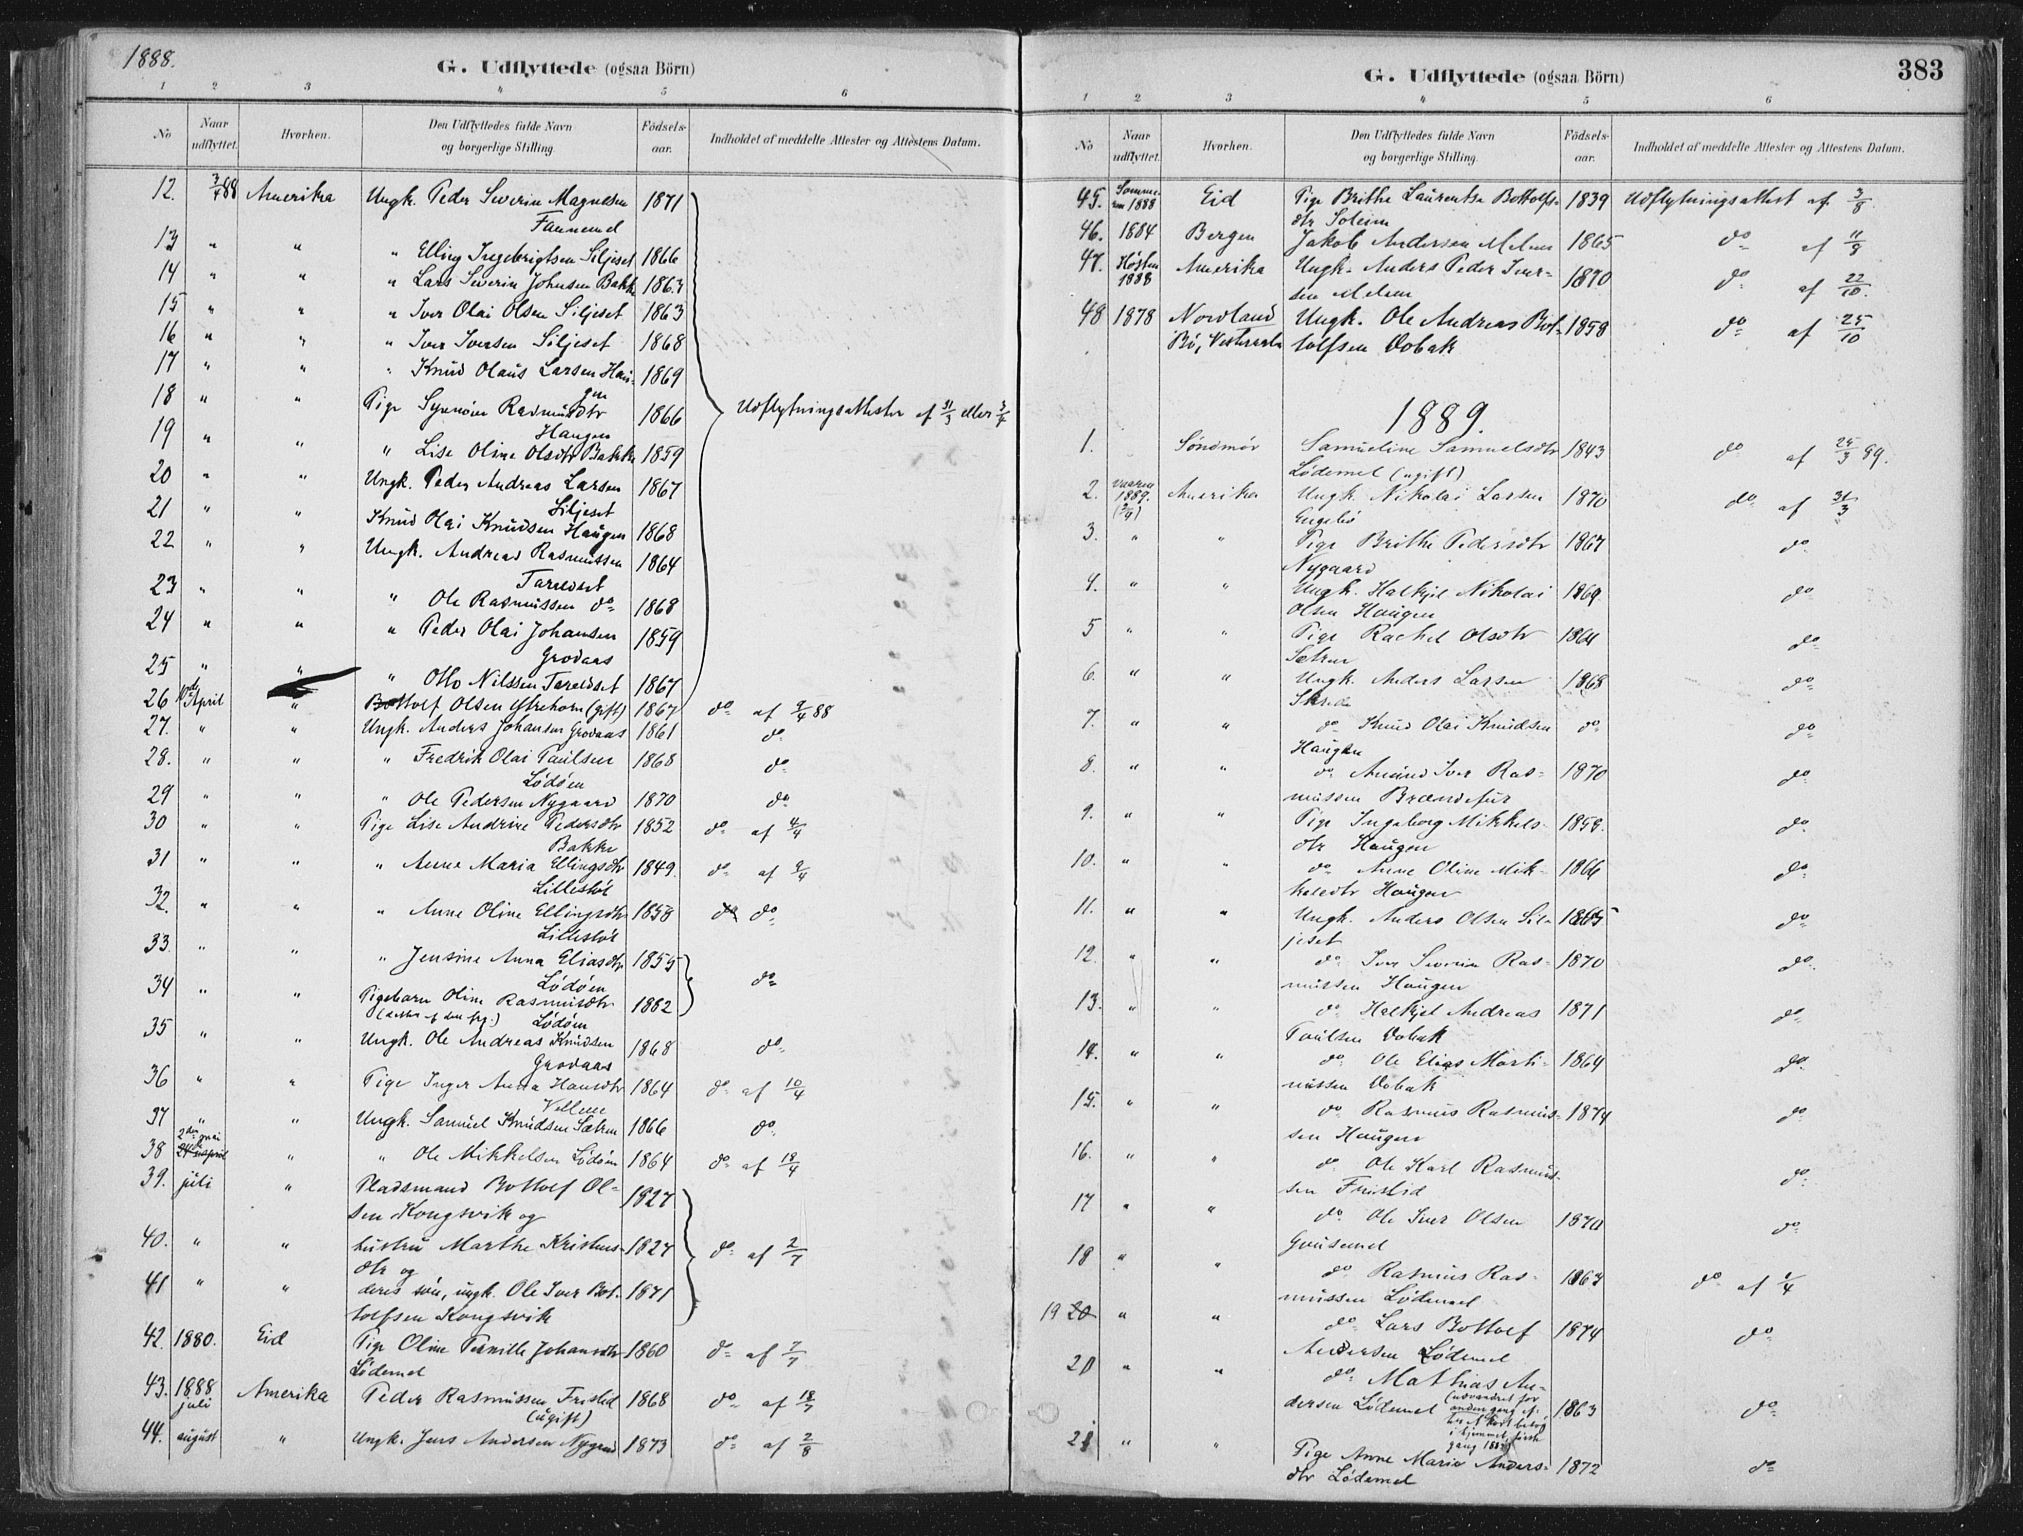 1888.
G. Udflyttede (ogsaa Börn)
1 2 3 4 5 6
No Naar udflyttet. Hvorhen. Den Udflyttedes fulde Navn og borgerlige Stilling. Födsels-aar. Indholdet af meddelte Attester og Attestens Datum.
12. 3/4 88 Amerika Ungk. Peder Severin Magnusen 1871
Fannemel
13 " " " Elling Ingebrigtsen Siljeset 1866
14 " " " Lars Severin Johnsen Bakke 1863
15 " " " Iver Olai Olsen Siljeset 1863
16 " " " Iver Iversen Siljeset 1868
17 " " " Knud Olaus Larsen Hau- 1869
gen
18 " " Pige Synnöve Rasmusdtr 1866 Udflytningsattester af 31/3 eller 3/4
Haugen
19 " " " Lise Oline Olsdtr Bakke 1859
20 " " Ungk. Peder Andreas Larsen 1867
Siljeset
21 " " Knud Olai Knudsen Haugen 1868
22 " " Ungk. Andreas Rasmussen 1864
Taraldset
23 " " " Ole Rasmussen do 1868
24 " " " Peder Olai Johansen 1859
Grodaas
25 " " " Otto Nilssen Taraldset 1867
26 10de April " Bottolf Olsen Ytrehorn (gift) 1867 do af 9/4 88
27. " " Ungk. Anders Johansen Grodaas 1861 do
28. " " " Fredrik Olai Paulsen 1868 do
Lödöen
29 " " " Ole Pedersen Nygaard 1870 do
30 " " Pige Lise Andrine Pedersdtr 1852 do af 4/4
Bakke
31 " " " Anne Maria Ellingsdtr 1849. do af 9/4
Lillestöl
32. " " " Anne Oline Ellingsdtr 1858 do do
Lillestöl
33. " " " Jensine Anna Eliasdtr 1855
Lödöen
34 " " Pigebarn Oline Rasmusdtr 1882 do
(datter af den frg.) Lödöen
35 " " Ungk. Ole Andreas Knudsen 1868 do
Grodaas
36 " " Pige Inger Anna Hansdtr 1864 do af 10/4
37 " " Ungk. Samuel Knudsen Sætren 1866 do
2den mai
38 " " Ole Mikkelsen Lödöen 1864 do af 18/4
39. juli " Pladsmand Bottolf Ol- 1827
sen Kongsvik og
40. " " hustru Marthe Kristens- 1827 do af 2/7
dtr og
41 " " deres sön, ungk. Ole Iver Bot- 1871
tolfsen Kongsvik
42. 1880. Eid Pige Oline Pernille Johansdtr 1860 do af 7/7
Lödemel
43. 1888 juli Amerika Peder Rasmussen Frislid 1868 do af 18/7
(ugift)
44. august " Ungk. Jens Andersen Nygaard 1873 do af 2/8
G. Udflyttede (ogsaa Börn) 383
1 2 3 4 5 6
No Naar udflyttet. Hvorhen. Den Udflyttedes fulde Navn og borgerlige Stilling. Födsels-aar. Indholdet af meddelte Attester og Attestens Datum.
45. Somme-ren 1888 Eid Pige Brithe Laurentse Bottolfs- 1839 Udflytningsattest af 3/8
dtr Soleim
46. 1884 Bergen Jakob Andersen Melsen 1865 do af 11/9
47. Hösten 1888 Amerika Ungk. Anders Peder Iver- 1870 do af 22/10.
sen Melsen
48 1878 Nordland Ungk. Ole Andreas Bot- 1858 do af 25/10
Bö, Vesteraalen tolfsen Dobak
1889.
1. Söndmör Samueline Samuelsdtr 1843 do af 25/3 89.
Lödemel (ugift)
2. Vaaren 1889. (3/4) Amerika Ungk. Nikolai Larsen 1870 do af 31/3
Engebö
3. " " Pige Brithe Pedersdtr 1867 do
Nygaard
4. " " Ungk. Halkjel Nikolai 1869. do
Olsen Haugen
5 " " Pige Rachel Olsdtr 1864 do
Sætren
6. " " Ungk. Anders Larsen 1868 do
Skrede
7. " " do Knud Olai Knudsen do do
Haugen
8. " " do Amund Iver Ras- 1870 do
mussen Brændefur
9. " " Pige Ingeborg Mikkels- 1858. do
dtr Haugen
10. " " do Anne Oline Mik- 1866 do
kelsdtr Haugen
11. " " Ungk. Anders Olsen Sil- 1865 do
jeset
12. " " do Iver Severin Ras- 1870 do
mussen Haugen
13. " " do Halkjel Andreas 1871 do
Paulsen Dobak
14. " " do Ole Elias Marti- 1864 do
nussen Dobak
15. " " do Rasmus Rasmus- 1874 do
sen Haugen
16. " " do Ole Karl Rasmus- do
sen Frislid
17 " " do Ole Iver Olsen 1870 do
Gausemel
18 " " do Rasmus Ras- 1863 do af 1/4
mussen Lödemel
19 20 " " do Lars Bottolf 1874 do
Andersen Lödemel
20 " " do Mathias An-
dersen Lödemel (udvandret for 1863 do
anden gang ef-
ter et kort besög
i hjemmet, förste
gang 188
21 " " Pige Anne Marie Anders- 1872 do
dtr Lödemel